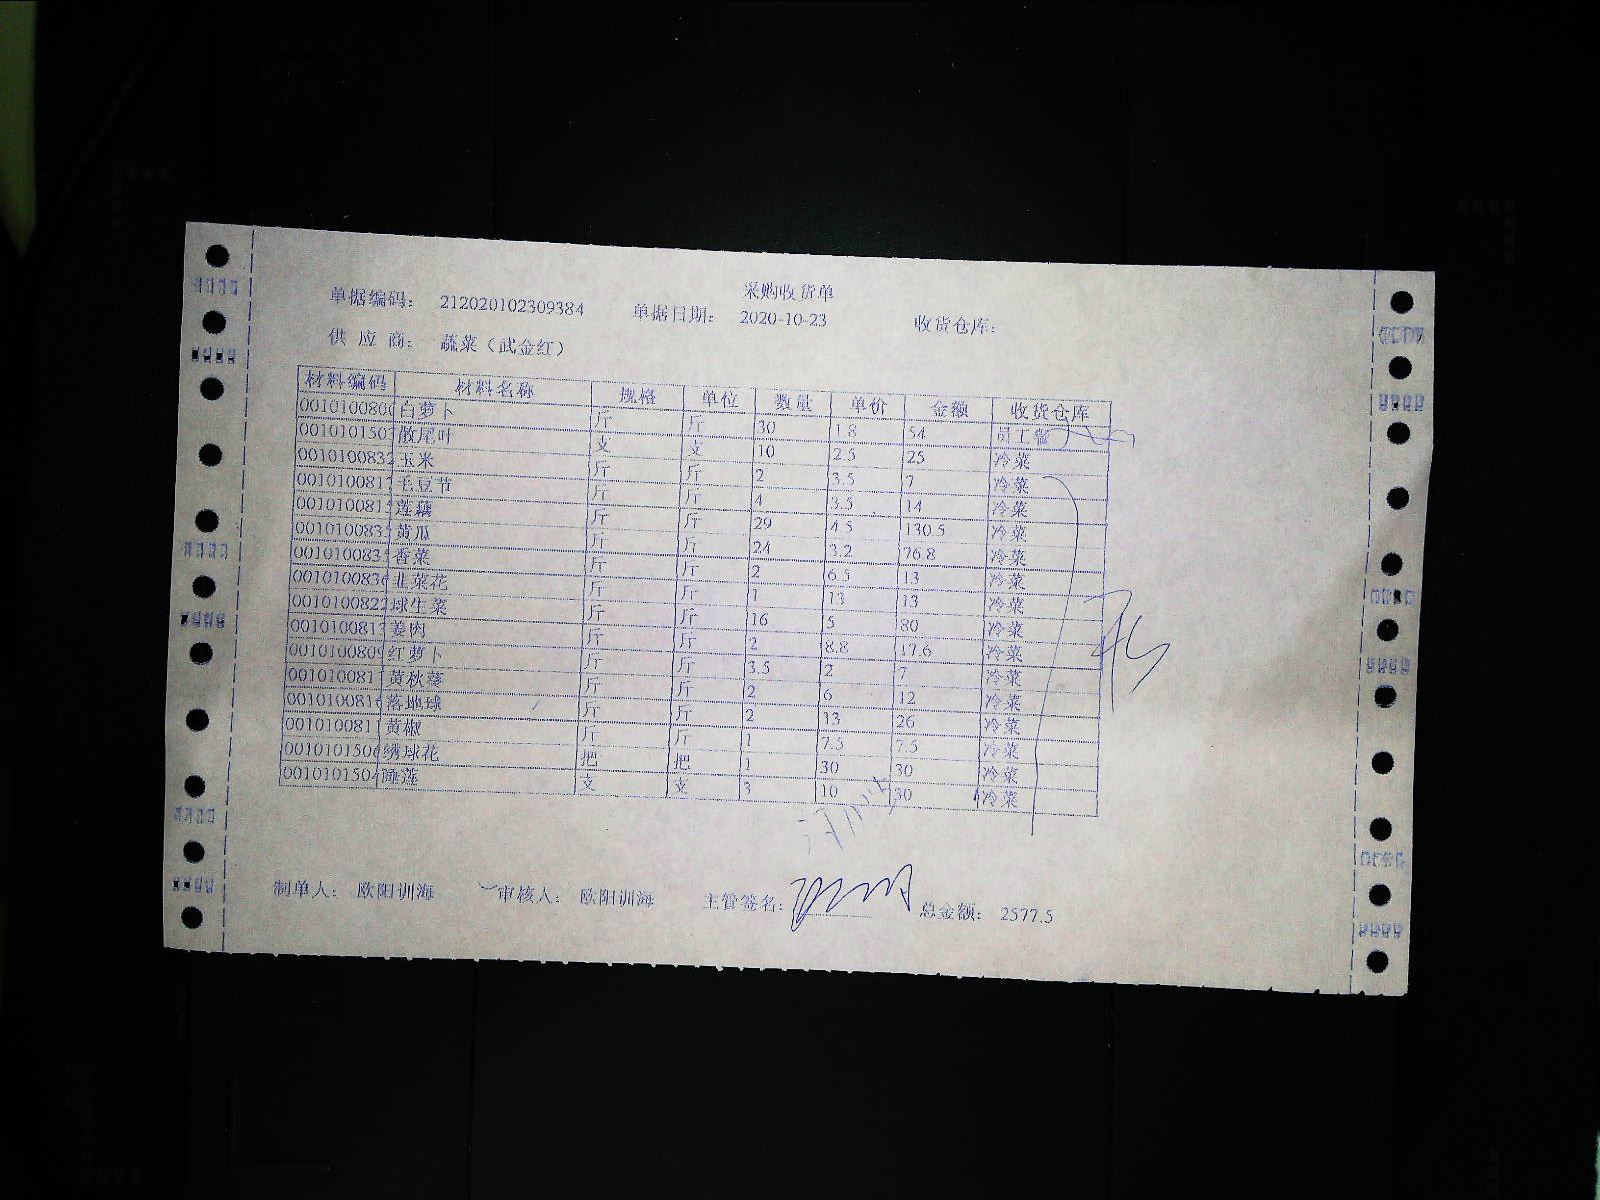 采购收货单
单据编码： 212020102309384 单据日期： 2020-10-23 收货仓库：
供 应 商： 蔬菜（武金红）
材料编码 材料名称 规格 单位 数量 单价 金额 收货仓库
001010080 白萝卜 斤 斤 30 1.8 54 员工餐
001010150 散尾叶 支 支 10 2.5 25 冷菜
0010100832 玉米 斤 斤 2 3.5 7 冷菜
001010081 毛豆节 斤 斤 4 3.5 14 冷菜
001010081 莲藕 斤 斤 29 4.5 130.5 冷菜
001010083 黄瓜 斤 斤 24 3.2 76.8 冷菜
001010083 香菜 斤 斤 2 6.5 13 冷菜
001010083 韭菜花 斤 斤 1 13 13 冷菜
0010100822 球生菜 斤 斤 16 5 80 冷菜
001010081 姜肉 斤 斤 2 8.8 17.6 冷菜
001010080 红萝卜 斤 斤 3.5 2 7 冷菜
001010081 黄秋葵 斤 斤 2 6 12 冷菜
001010081 落地球 斤 斤 2 13 26 冷菜
001010081 黄椒 斤 斤 1 7.5 7.5 冷菜
001010150 绣球花 把 把 1 30 30 冷菜
001010150 睡莲 支 支 3 10 30 冷菜
制单人： 欧阳训海 审核人： 欧阳训海 主管签名： 总金额： 2577.5